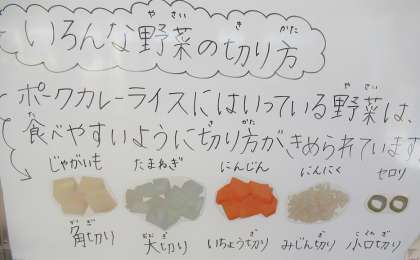 いろんな野菜の切り方
ポークカレーライスにはいっている野菜は、
食べやすいように切り方がきめられています
じゃがいも たまねぎ にんじん にんにく セロリ
角切り 大切り いちょう切り みじん切り 小口切り